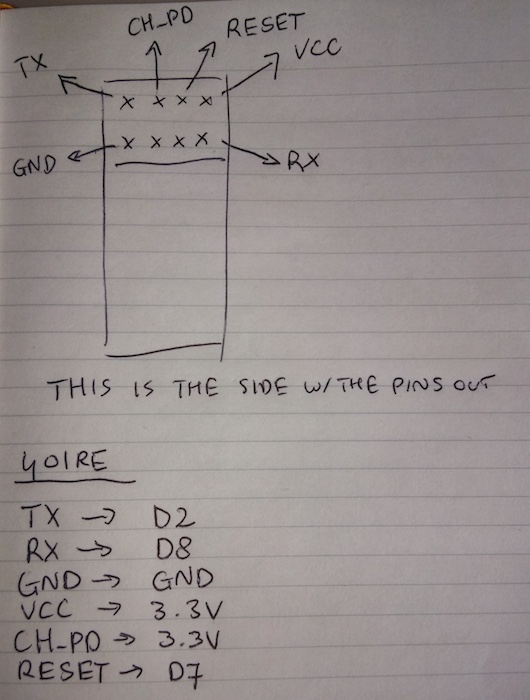 CH_PD
RESET
TX
VCC
x x x x
x x x x
GND
RX
THIS IS THE SIDE W/THE PINS OUT
YOIRE
TX → D2
RX → D8
GND → GND
VCC → 3.3V
CH_PD → 3.3V
RESET → D7